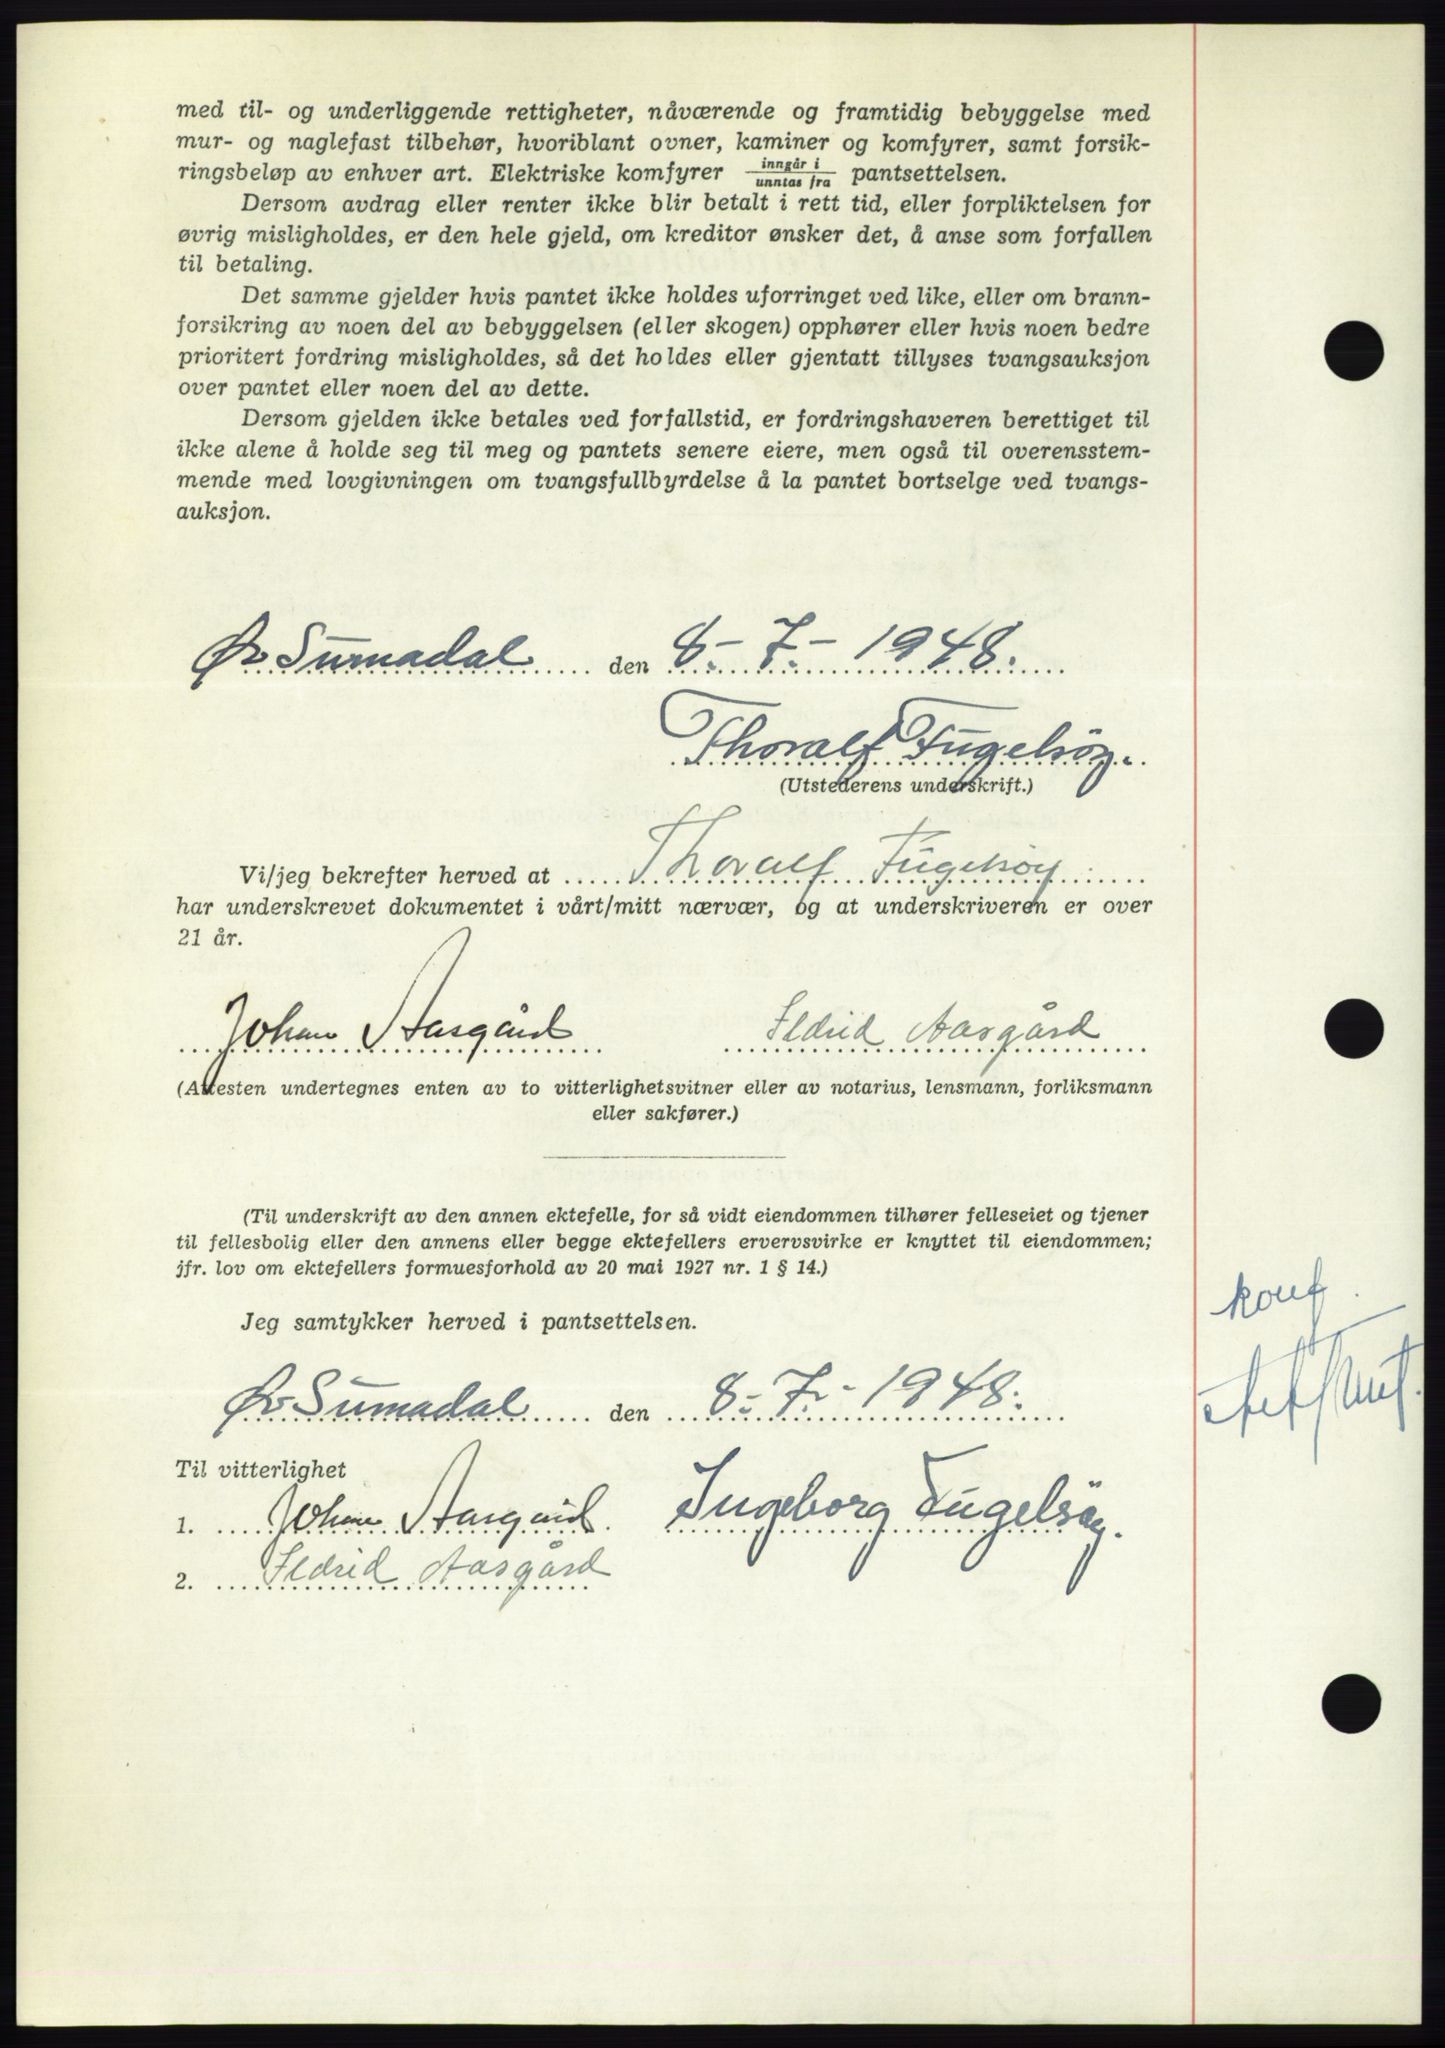 med til- og underliggende rettigheter, nåværende og framtidig bebyggelse med
mur- og naglefast tilbehør, hvoriblant ovner, kaminer og komfyrer, samt forsik-
ringsbeløp av enhver art. Elektriske komfyrer inngår i / unntas fra pantsettelsen.
Dersom avdrag eller renter ikke blir betalt i rett tid, eller forpliktelsen for
øvrig misligholdes, er den hele gjeld, om kreditor ønsker det, å anse som forfallen
til betaling.
Det samme gjelder hvis pantet ikke holdes uforringet ved like, eller om brann-
forsikring av noen del av bebyggelsen (eller skogen) opphører eller hvis noen bedre
prioritert fordring misligholdes, så det holdes eller gjentatt tillyses tvangsauksjon
over pantet eller noen del av dette.
Dersom gjelden ikke betales ved forfallstid, er fordringshaveren berettiget til
ikke alene å holde seg til meg og pantets senere eiere, men også til overensstem-
mende med lovgivningen om tvangsfullbyrdelse å la pantet bortselge ved tvangs-
auksjon.
Øv Surnadal den 8.-7.-1948.
Thoralf Fugelsöy.
(Utstederens underskrift.)
Vi/jeg bekrefter herved at Thoralf Fugelsöy
har underskrevet dokumentet i vårt/mitt nærvær, og at underskriveren er over
21 år.
Johan Aasgård Ildrid Aasgård
(Attesten undertegnes enten av to vitterlighetsvitner eller av notarius, lensmann, forliksmann
eller sakfører.)
(Til underskrift av den annen ektefelle, for så vidt eiendommen tilhører felleseiet og tjener
til fellesbolig eller den annens eller begge ektefellers ervervsvirke er knyttet til eiendommen;
jfr. lov om ektefellers formuesforhold av 20 mai 1927 nr. 1 § 14.)
konf.
Jeg samtykker herved i pantsettelsen.
Øv Surnadal den 8.-7.-1948.
Til vitterlighet
1. Johan Aasgård. Ingeborg Fugelsöy.
2. Ildrid Aasgård